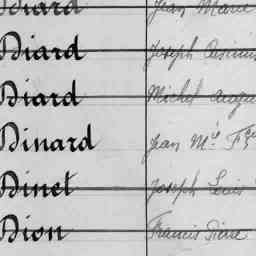 Diard Jean Marie
Diard Joseph Casimir
Diard Michel Augu
Dinard Jean Mie Fçis
Dinet Joseph Louis
Dion Francis Pierre